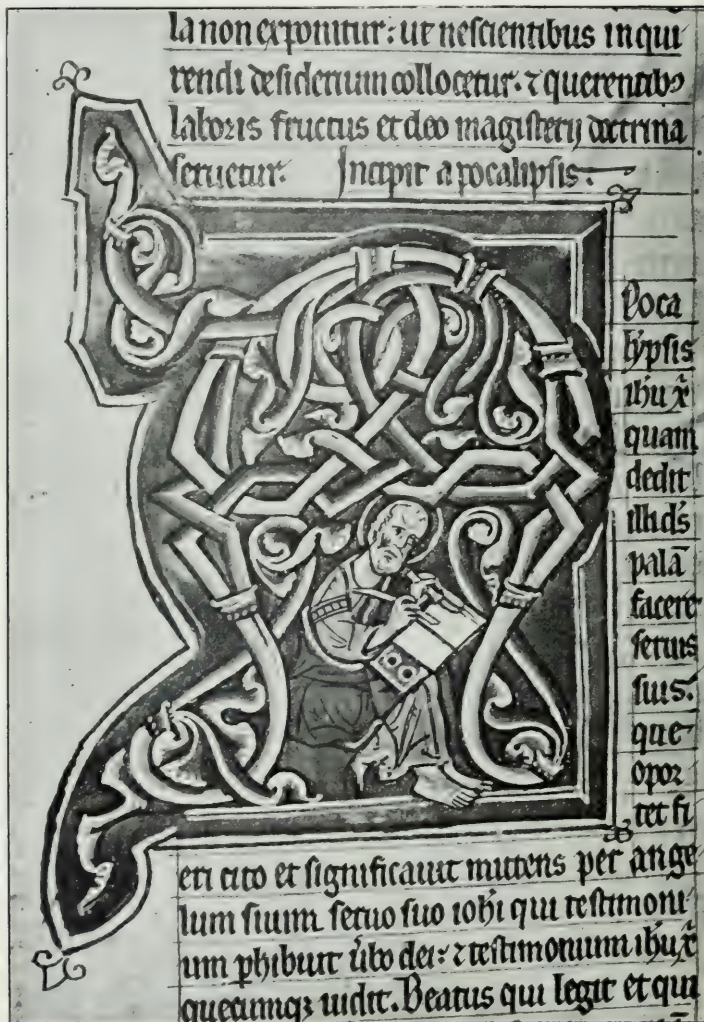 la non exponitur: ut nescientibus inqui
rendi desiderium collocetur. ⁊ querentib⁹
laboris fructus et deo magisterij doctrina
seruetur. Incipit apocalipsis.
Poca
lypsis
ihu xp̄
quam
dedit
illi ds̄
palā
facere
seruis
suis.
que
opor
tet fi
eri cito et significauit mittens per ange
lum suum seruo suo iohi qui testimoni
um phibuit ūbo dei: ⁊ testimonium ihu x̄
quecumq; uidit. Beatus qui legit et qui